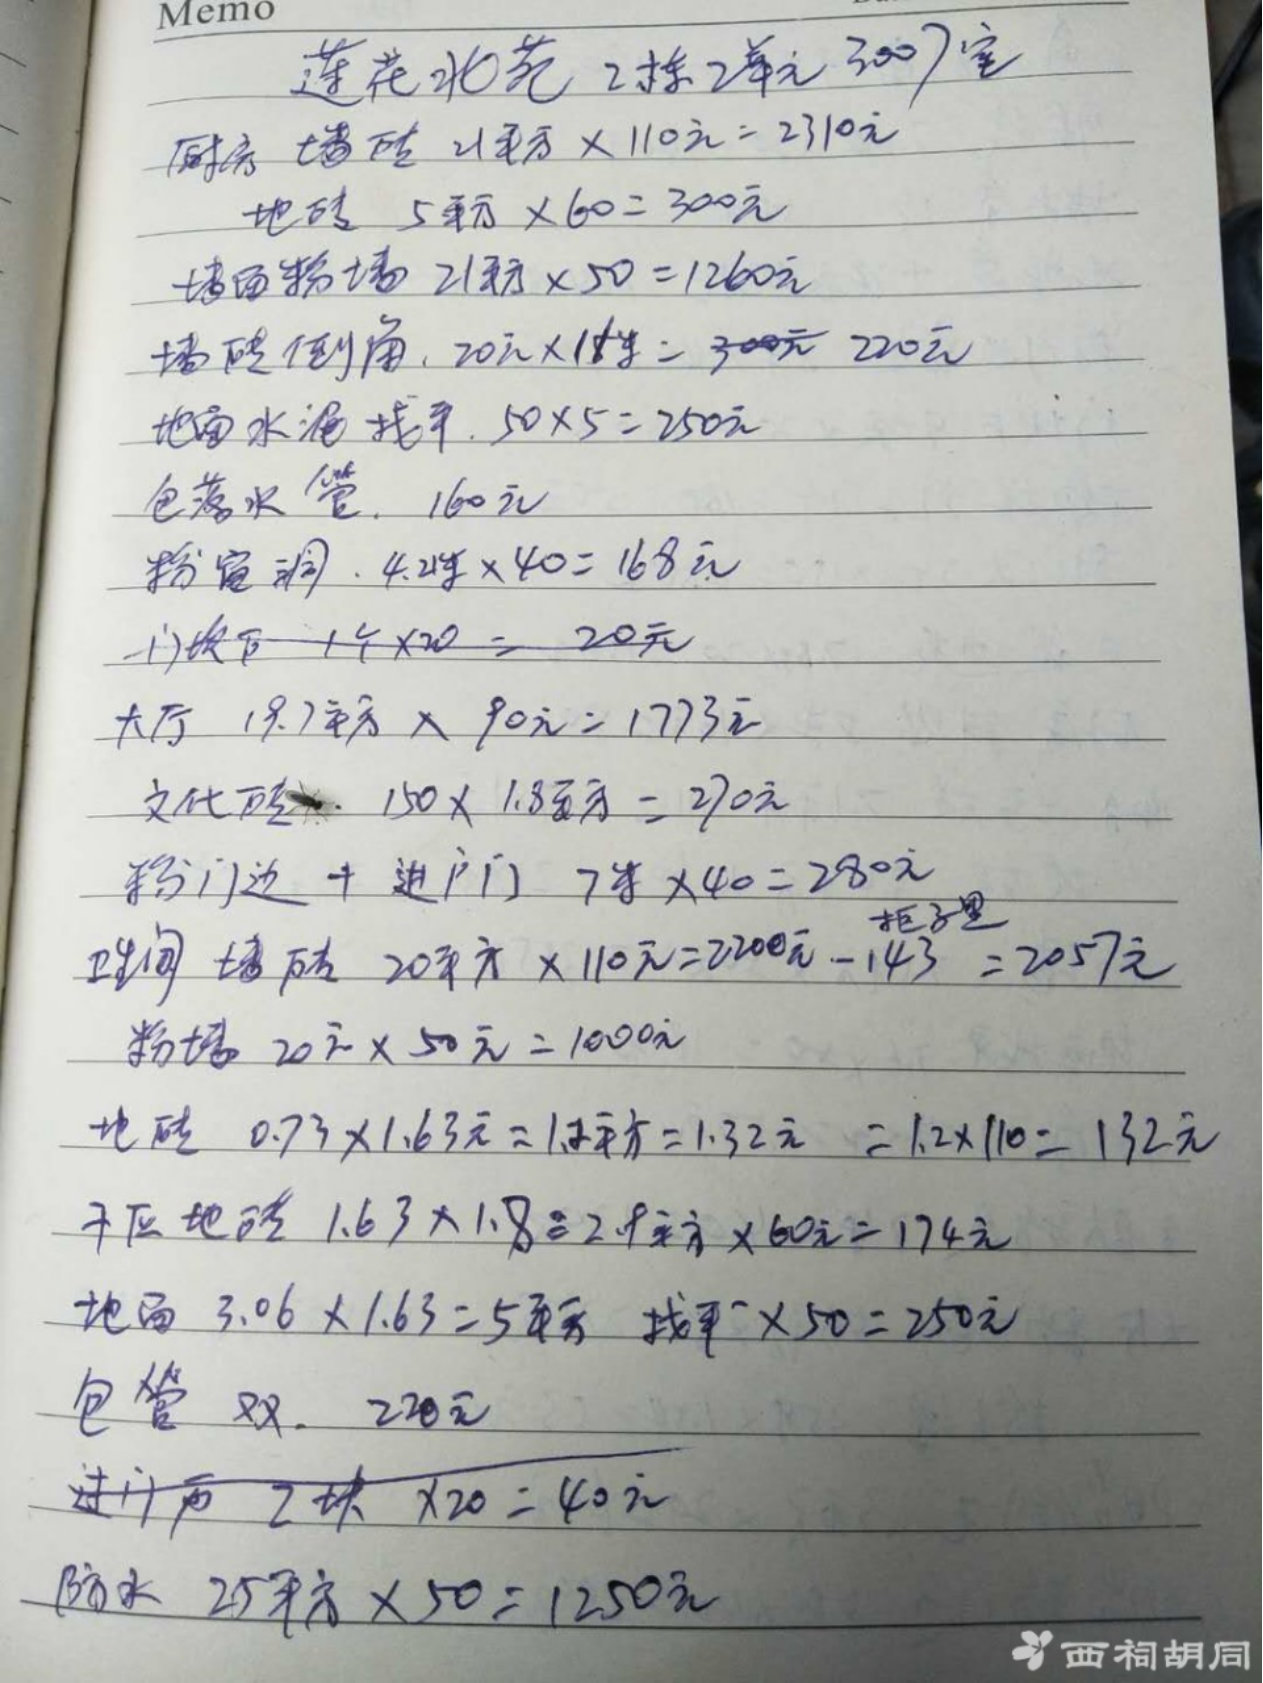 Memo
莲花北苑 2栋2单元3007室
厨房 墙砖 21平方×110元=2310元
地砖 5平方×60=300元
墙面粉墙 21平方×50=1260元
墙砖倒角.20元×1米=300元 220元
地面水泥找平.50×5=250元
包落水管.160元
粉窗洞.4.2米×40=168元
门坎石 1个×20=20元
大厅 19.7平方×90元=1773元
文化砖.150×1.8平方=270元
粉门边+进户门 7米×40=280元
柜子里
卫生间 墙砖 20平方×110元=2200元-143=2057元
粉墙 20元×50元=1000元
地砖 0.73×1.63元=1.2平方=1.32元 =1.2×110=132元
干区地砖 1.63×1.8=2.9平方×60元=174元
地面 3.06×1.63=5平方 找平×50=250元
包管 双.220元
过门石 2块×20=40元
防水 25平方×50=1250元
西祠胡同